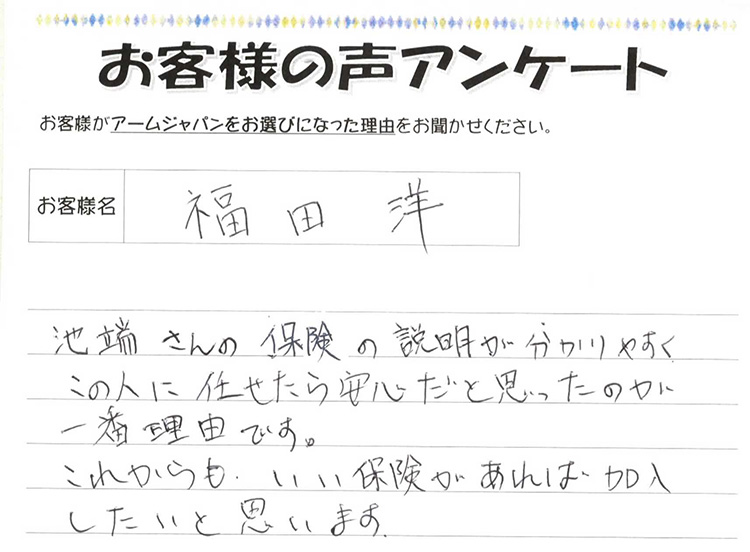 お客様の声アンケート
お客様がアームジャパンをお選びになった理由をお聞かせください。
お客様名 福田 洋
池端さんの保険の説明が分かりやすく
この人に任せたら安心だと思ったのが
一番理由です。
これからも、いい保険があれば加入
したいと思います。